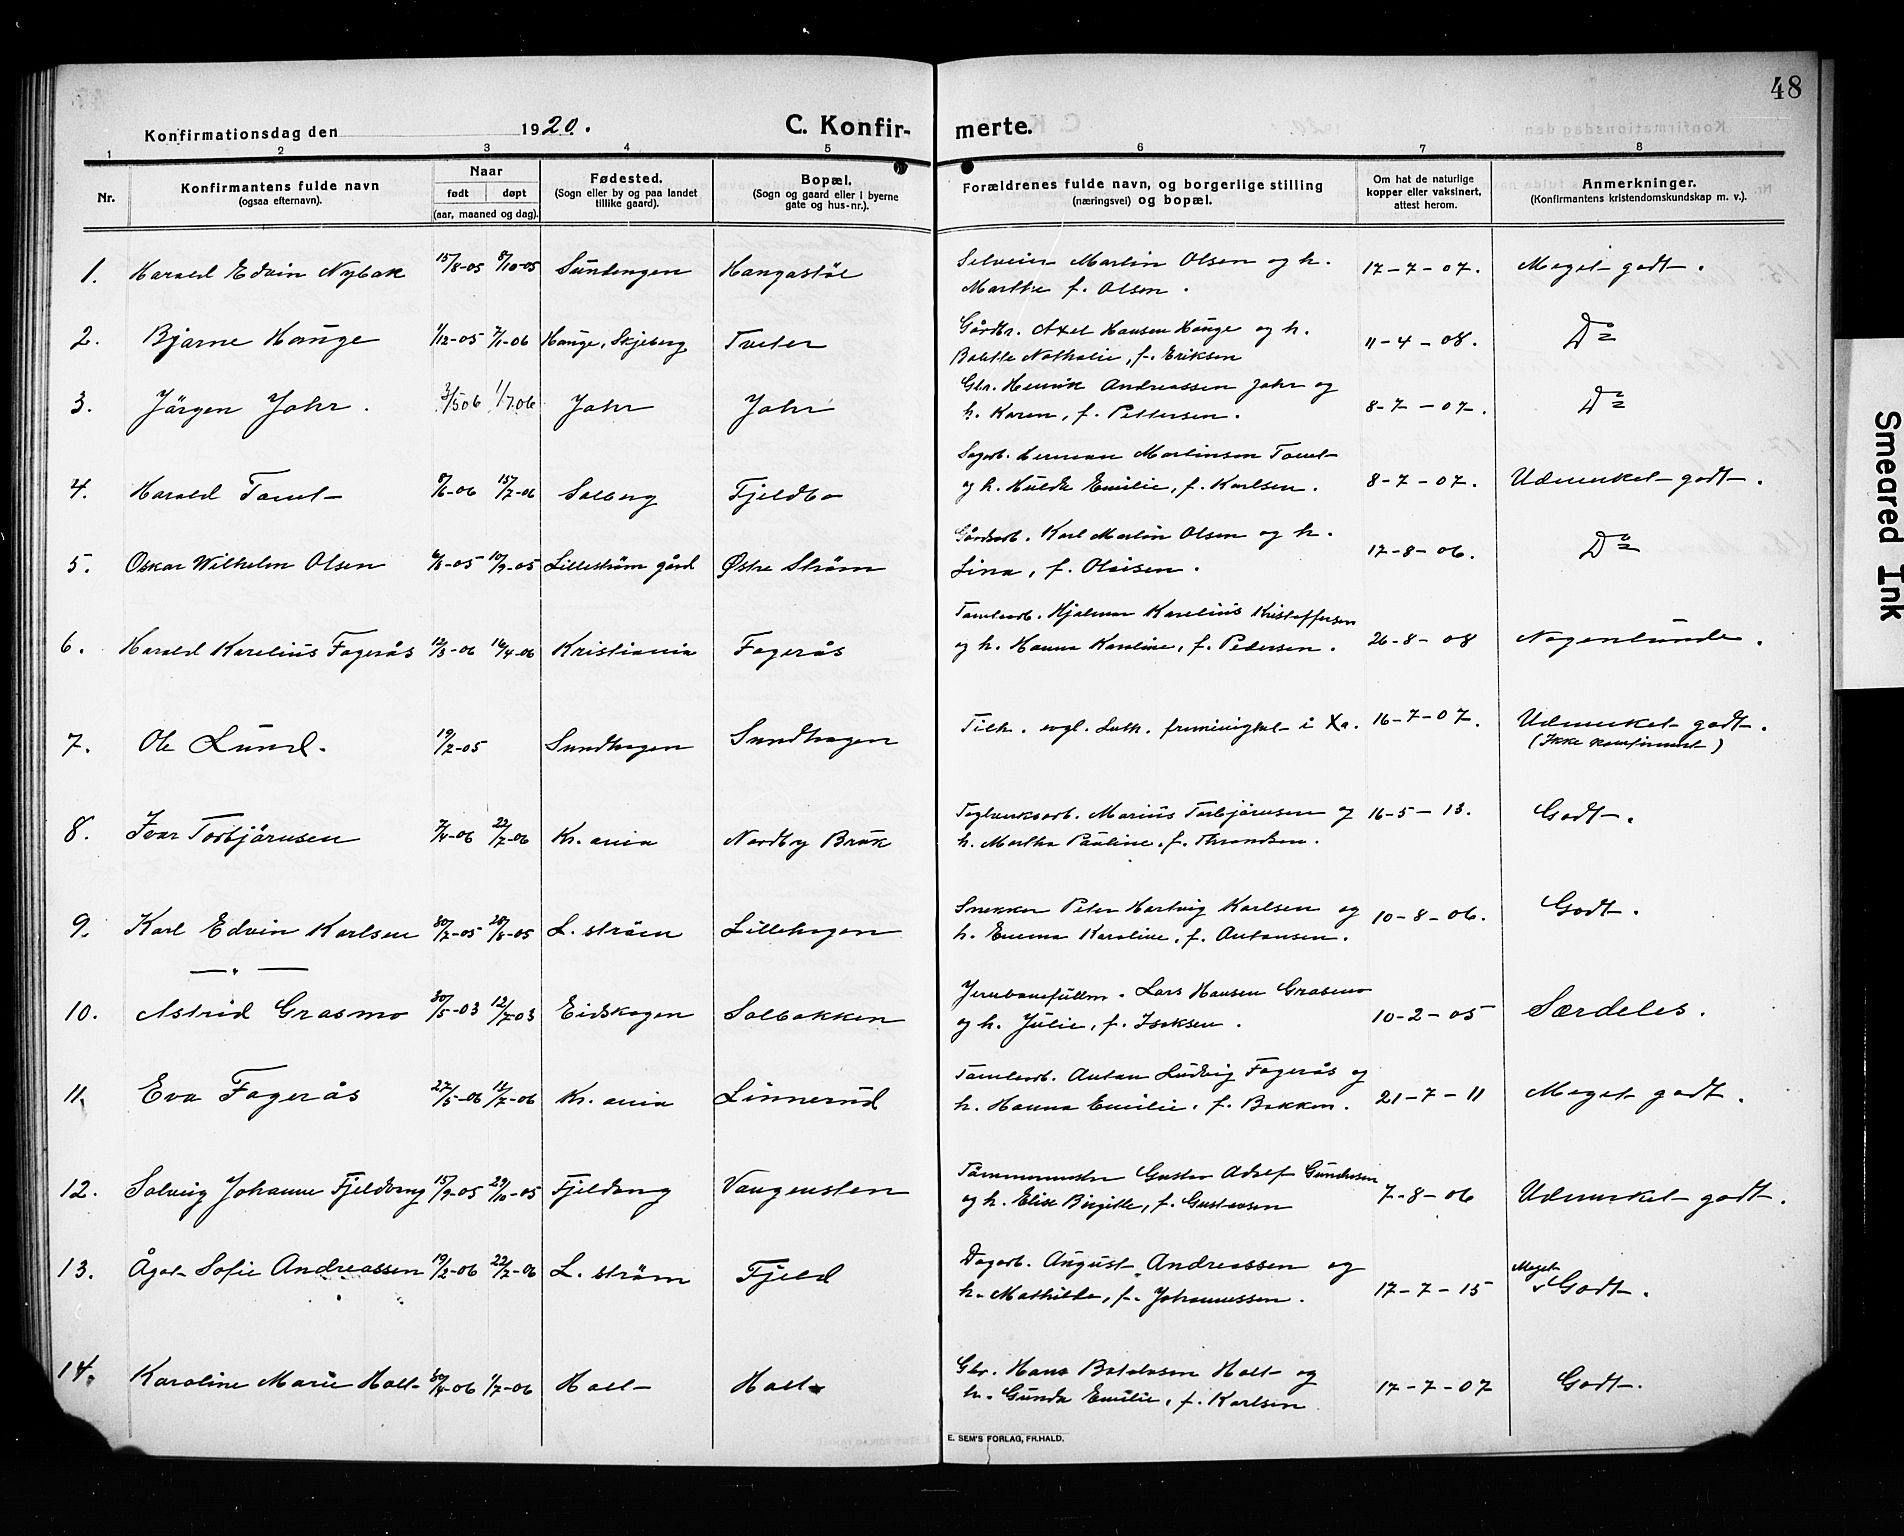 48
Konfirmationsdag den 1920. C. Konfirmerte.
1 2 3 4 5 6 7 8
Nr. Konfirmantens fulde navn (ogsaa efternavn). Naar født døpt (aar, maaned og dag). Fødested. (Sogn eller by og paa landet tillike gaard). Bopæl. (Sogn og gaard eller i byerne gate og hus-nr.). Forældrenes fulde navn, og borgerlige stilling (næringsvei) og bopæl. Om hat de naturlige kopper eller vaksinert, attest herom. Anmerkninger. (Konfirmantens kristendomskundskap m. v.).
1. Harald Edvin Nybak 15/8-05 8/10-05 Sundengen Haugastøl Selveier Martin Olsen og h. 17-7-07. Meget godt.
Marthe f. Olsen.
2. Bjarne Hauge 1/12-05 7/1-06 Hauge, Skjeberg Tveter Gårdbr. Axel Hansen Hauge og h. 11-4-08. Do
Bolette Nathalie, f. Eriksen
3. Jörgen Jahr. 3/5 06 1/7 06 Jahr Jahr Gbr. Henrik Andreassen Jahr og 8-7-07. Do
h. Karen, f. Pettersen.
4. Harald Tomt 8/6-06 15/7-06 Solberg Fjeldbo Sagarb. Herman Martinsen Tomt 8-7-07. Udmerket godt.
og h. Hulda Emilie, f. Karlsen.
5. Oskar Wilhelm Olsen 6/8-05 10/9-05 Lilleström gård Østre Ström Gårdarb. Karl Martin Olsen og h. 17-8-06. Do
Lina, f. Olaisen.
6. Harald Karelius Fagerås 12/3-06 16/4-06 Kristiania Fagerås Tomtearb. Hjalmar Karelius Kristoffersen 26-8-08 Nogenlunde.
og h. Hanna Karoline, f. Pedersen.
7. Ole Lund. 19/2-05 Sundhagen Sundhagen Tilh. evgl. Luth. frimenighet i Xa. 16-7-07. Udmerket godt.
(Ikke konfirmert)
8. Ivar Torbjörnsen 7/4-06 22/7-06 Kr.ania Nordby Bruk Teglverksarb. Marius Torbjörnsen og 16-5-13. Godt.
h. Martha Pauline, f. Throndsen.
9. Karl Edvin Karlsen 30/7-05 20/8-05 L.ström Lillehagen Snekker Peter Hartvig Karlsen og 10-8-06. Godt.
h. Emma Karoline, f. Antonsen.
— „ —
10. Astrid Grasmo 30/5-03 12/7-03 Eidskogen Solbakken Jernbanefullm. Lars Hansen Grasmo 10-2-05 Særdeles.
og h. Julie, f. Isaksen.
11. Eva Fagerås 27/5-06 15/7-06 Kr.ania Linnerud Tomtearb. Anton Ludvig Fagerås og 21-7-11 Meget godt.
h. Hanna Emilie, f. Bakken.
12. Solveig Johanne Fjeldvang 15/9-05 29/10-05 Fjeldvang Vangensten Tömmermester Gustav Adolf Gundersen 7-8-06 Udmerket godt.
og h. Elise Birgitte, f. Gustavsen
13. Ågot Sofie Andreassen 19/2-06 22/7-06 L.ström Fjeld Dagarb. August Andreassen og 17-7-15 Meget Godt.
h. Mathilde, f. Johannessen.
14. Karoline Marie Holt 30/4-06 1/7-06 Holt Holt Gbr. Hans Botolvsen Holt og 17-7-07 Godt.
h. Gunda Emilie, f. Karlsen
E. SEM'S FORLAG, FR.HALD.
Smeared Ink